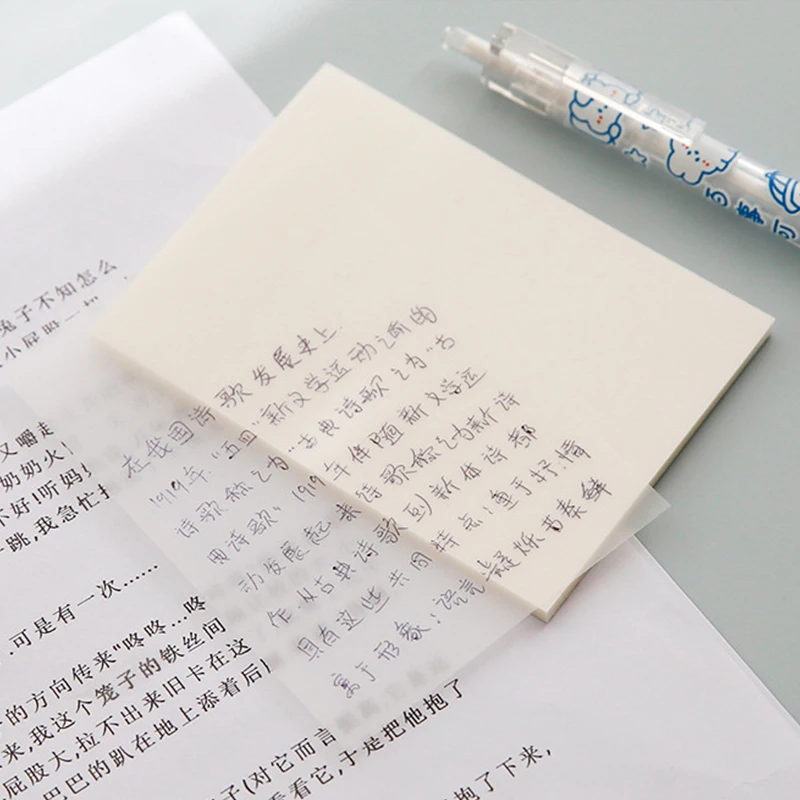 兔子不知怎么
小屁股一
又嚼走
奶奶火
不好!听妈
跳,我急忙
.可是有一次……
的方向传来"咚咚…咚
来,我这个笼子的铁丝间
屁股大,拉不出来旧卡在这
巴巴的趴在地上添着后
子(对它而言
看看它,于是把他抱了
抱了下来,
在我国诗歌发展史上.
1919年"五四"新文学运动之前的
诗歌称之为"古典诗歌"之为"古
典诗歌".1919年伴随新文学运
动发展起来诗歌称之为新诗
作.从古典诗歌到新体诗都
具有这些共同特点:重于抒情
寓于形象;语言凝炼节奏鲜